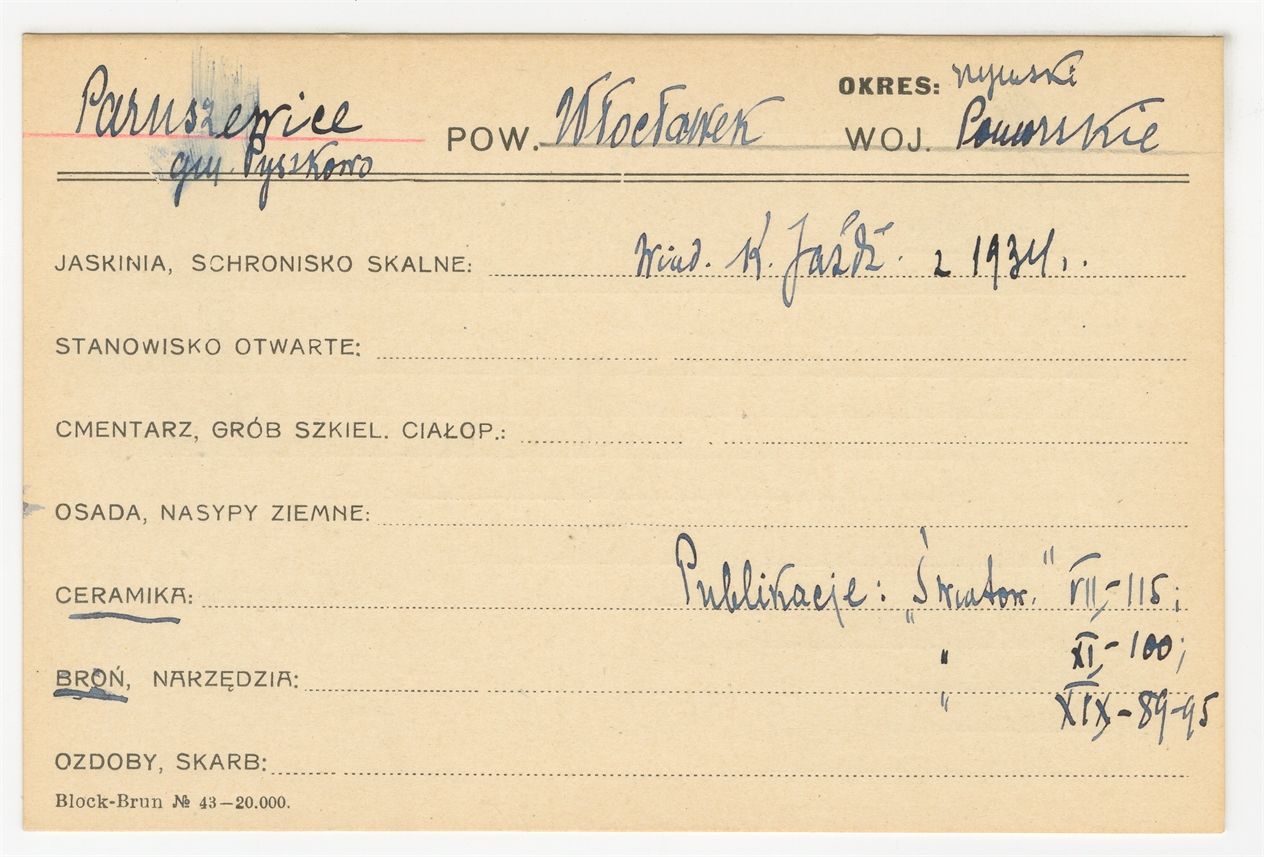 OKRES: rzymski
Paruszewice POW. Włocławek WOJ. Pomorskie
gm. Pyszkowo
JASKINIA, SCHRONISKO SKALNE: Wiad. K. Jażdż. z 1934r.
STANOWISKO OTWARTE:
CMENTARZ, GRÓB SZKIEL. CIAŁOP.:
OSADA, NASYPY ZIEMNE:
CERAMIKA: Publikacje: „Światow." VII,-115;
" XI,-100;
BROŃ, NARZĘDZIA:
" XIX,-89-95
OZDOBY, SKARB:
Block-Brun № 43—20.000.